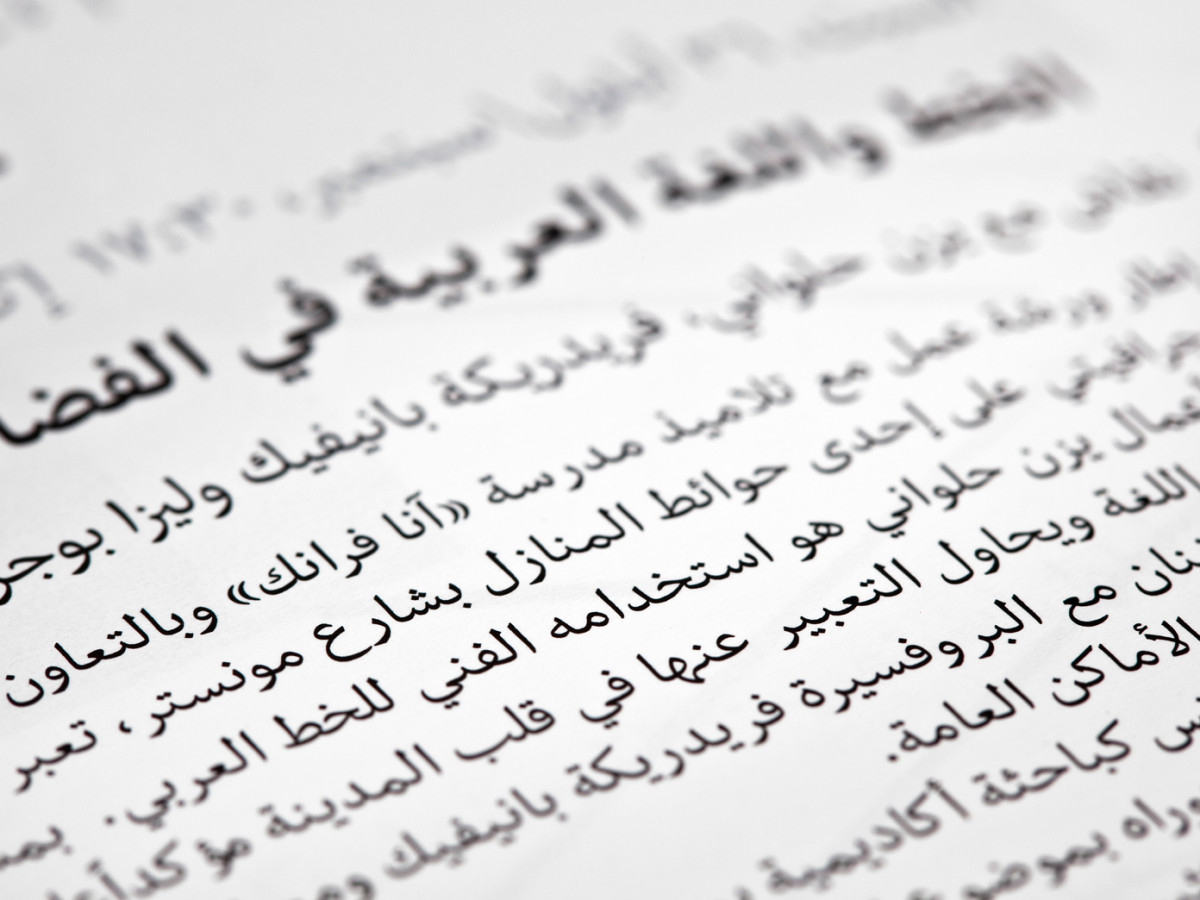 أيلول/سبتمبر، ١٧:٣٠
الخط واللغة العربية في الفضا
نقاش مع يزن حلواني، فريدريكة بانيفيك وليزا بوجر
إطار ورشة عمل مع تلاميذ مدرسة «آنا فرانك» وبالتعاون
جرافيتي على إحدى حوائط المنازل بشارع مونستر، تعبر
أعمال يزن حلواني هو استخدامه الفني للخط العربي. بمس
اللغة ويحاول التعبير عنها في قلب المدينة مؤكداً
نان مع البروفسيرة فريدريكة بانيفيك وم
الأماكن العامة.
س كباحثة أكاديمية
وراه بموضوع